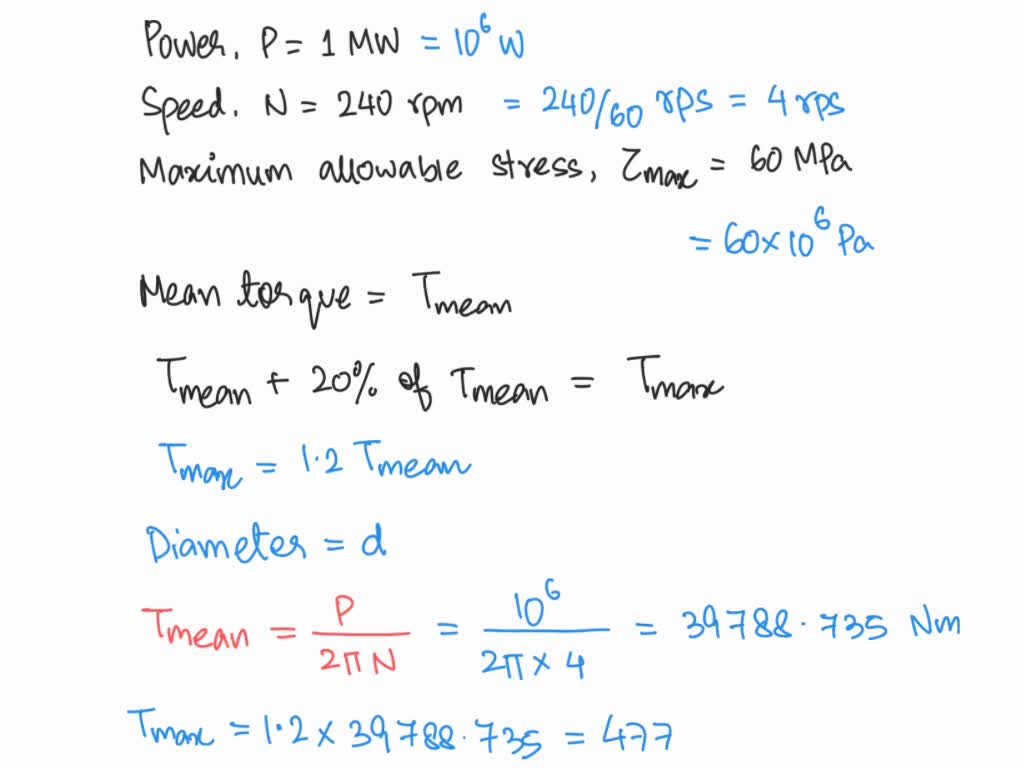 Power, P = 1 MW = 10⁶ W
Speed. N = 240 rpm = 240/60 rps = 4 rps
Maximum allowable stress, τmax = 60 MPa
= 60×10⁶ Pa
Mean torque = Tmean
Tmean + 20% of Tmean = Tmax
Tmax = 1.2 Tmean
Diameter = d
Tmean = P/2πN = 10⁶/2π × 4 = 39788.735 Nm
Tmax = 1.2 × 39788.735 = 477